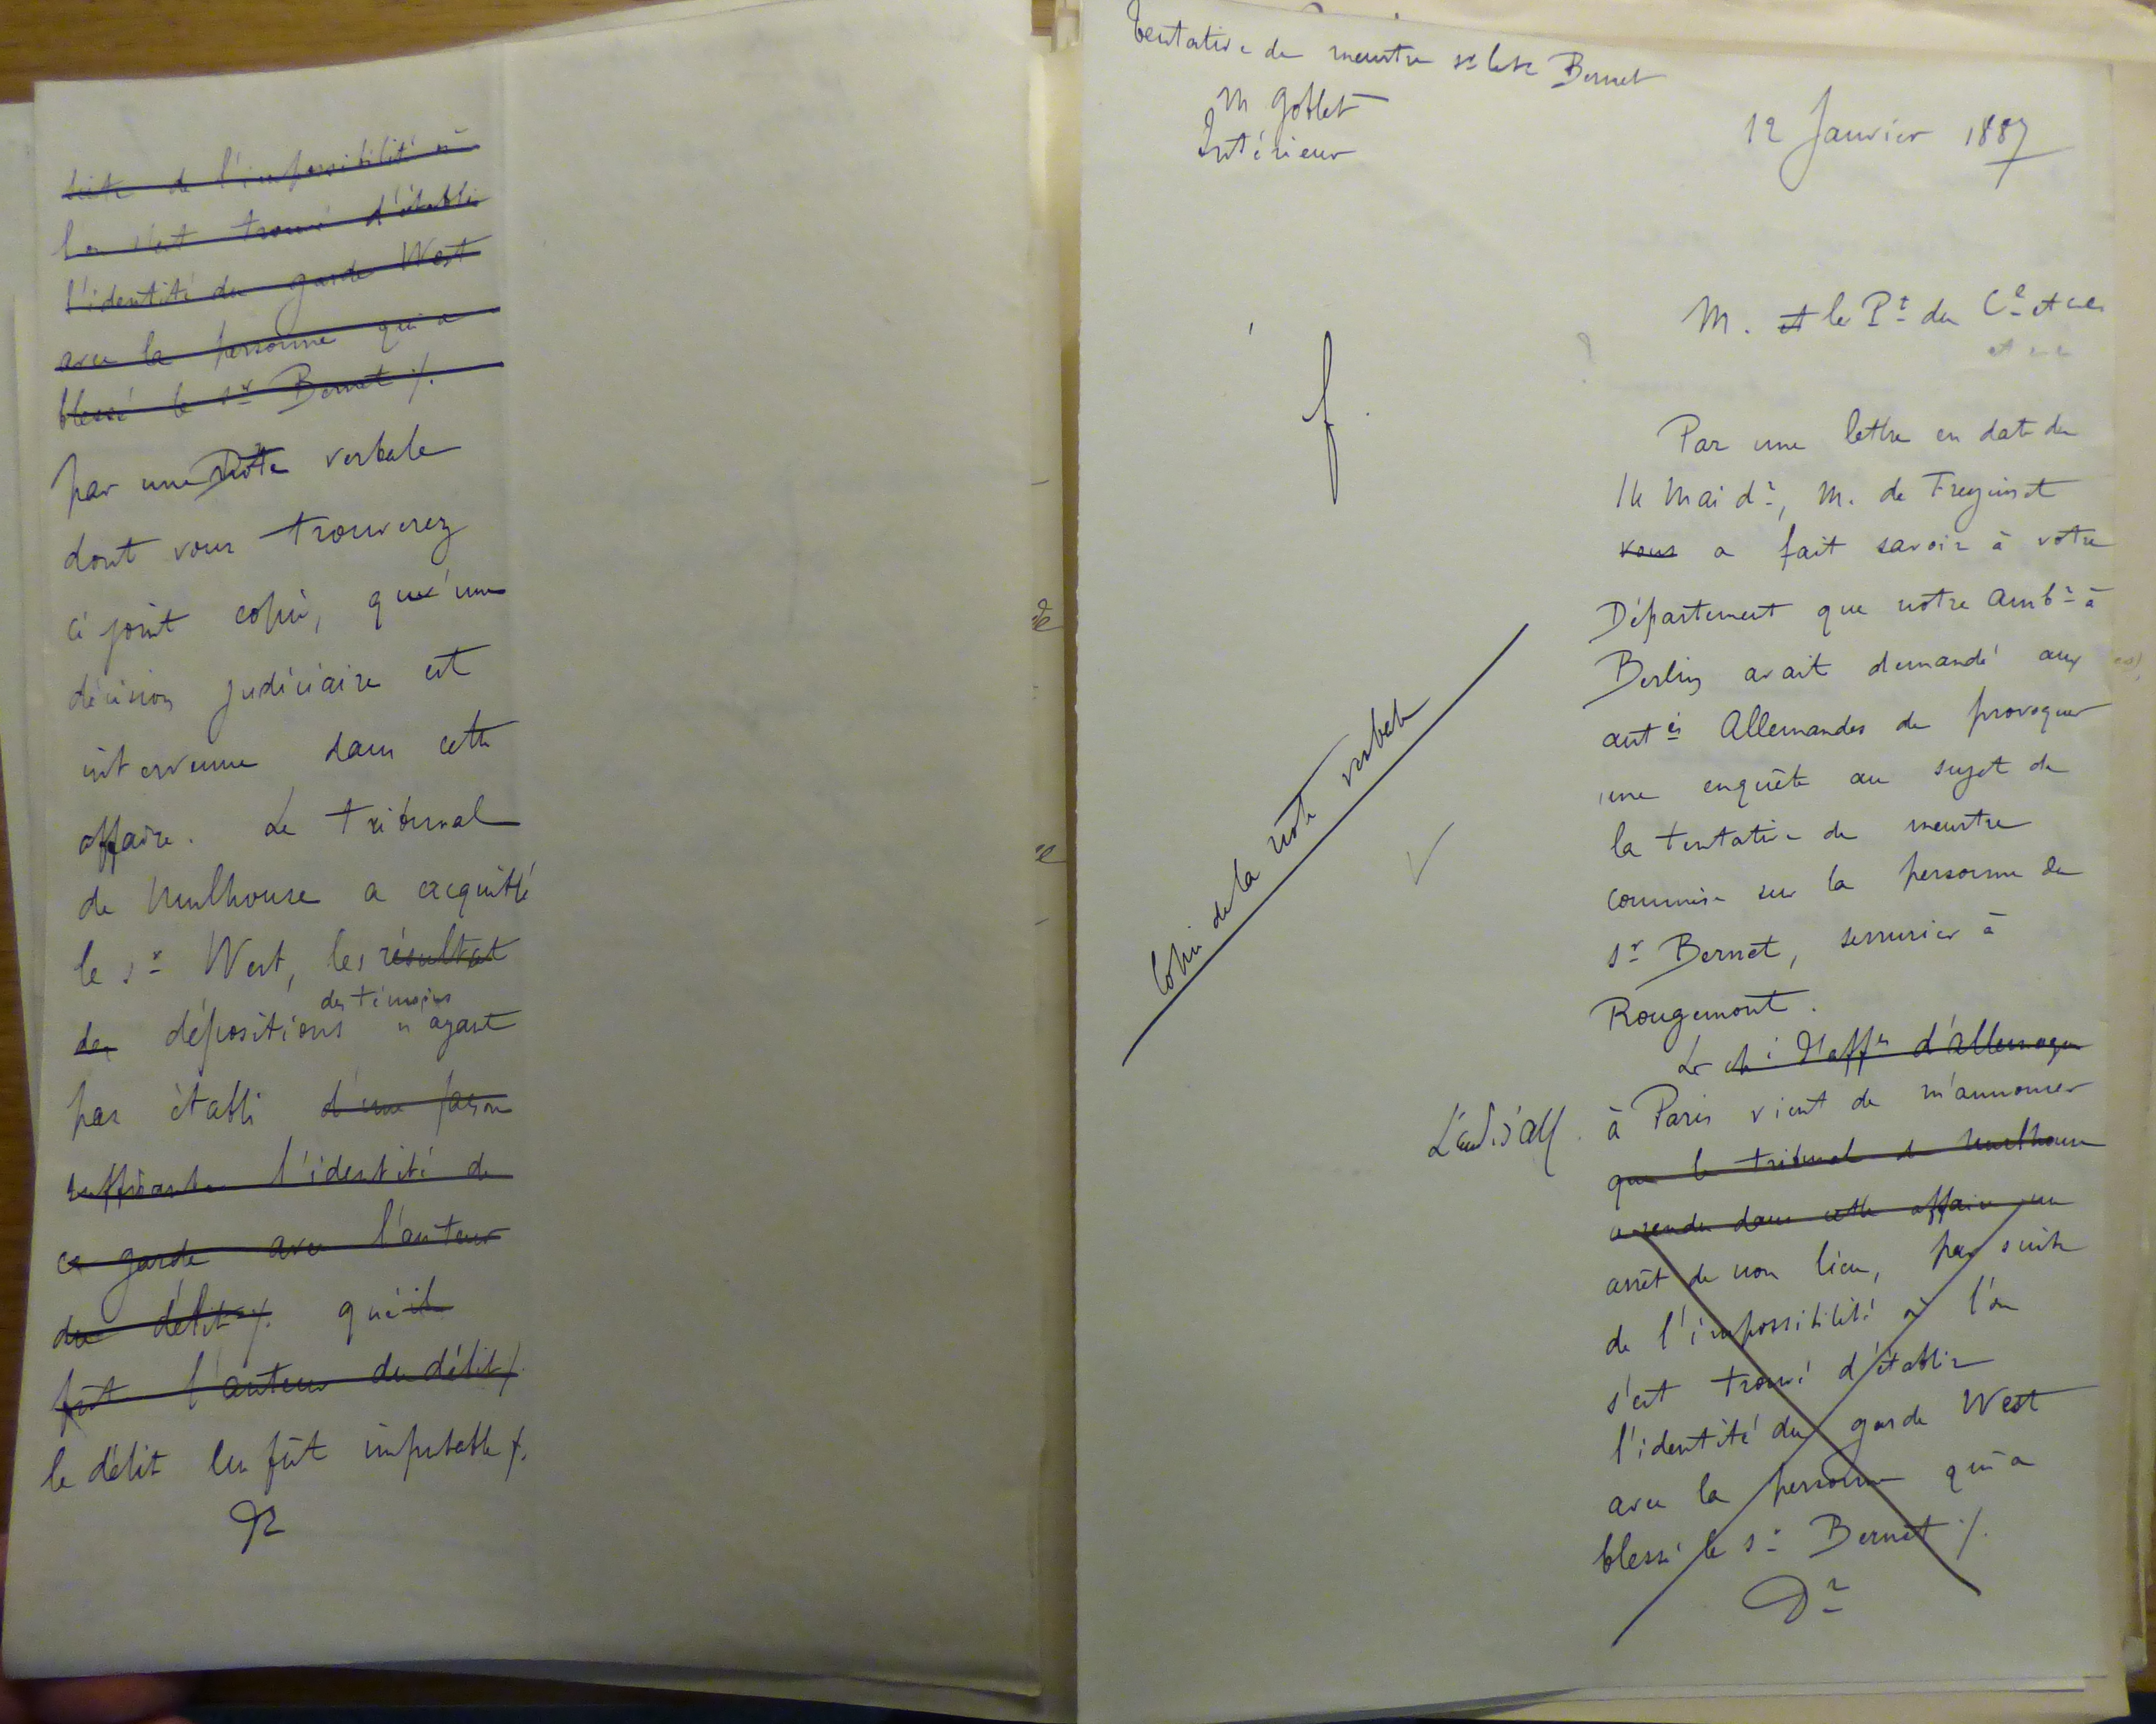 suite de l'impossibilité où
l'on s'est trouvé d'établir
l'identité du garde West
avec la personne qui a
blessé le sr Bernet ./.
par une note verbale
dont vous trouverez
ci joint copie, qu'une
décision judiciaire est
intervenue dans cette
affaire. Le tribunal
de Mulhouse a acquitté
le sr West, les résultat
des témoins
des dépositions n'ayant
pas établi d'une façon
suffisante l'identité de
ce garde avec l'auteur
du délit ./. qu'il
fût l'auteur du délit ./.
le délit lui fût imputable ./.
Dr
Tentative de meurtre sr le sr Bernet
M Goblet
Intérieur
12 Janvier 1887
M. et le Pt du Cl et cer
et cer
f.
Par une lettre en date du
14 Mai dr, M. de Freycinet
vous a fait savoir à votre
Département que notre Ambr à
Berlin avait demandé aux
autés Allemandes de provoquer
une enquête au sujet de
la tentative de meurtre
commise sur la personne du
sr Bernet, serrurier à
Rougemont.
Copie de la note verbale
Le ché d'affes d'Allemagne
L'amb. d'All. à Paris vient de m'annoncer
que le tribunal de Mulhouse
a rendu dans cette affaire un
arrêt de non lieu, par suite
de l'impossibilité où l'on
s'est trouvé d'établir
l'identité du garde West
avec la personne qui a
blessé le sr Bernet ./.
Dr